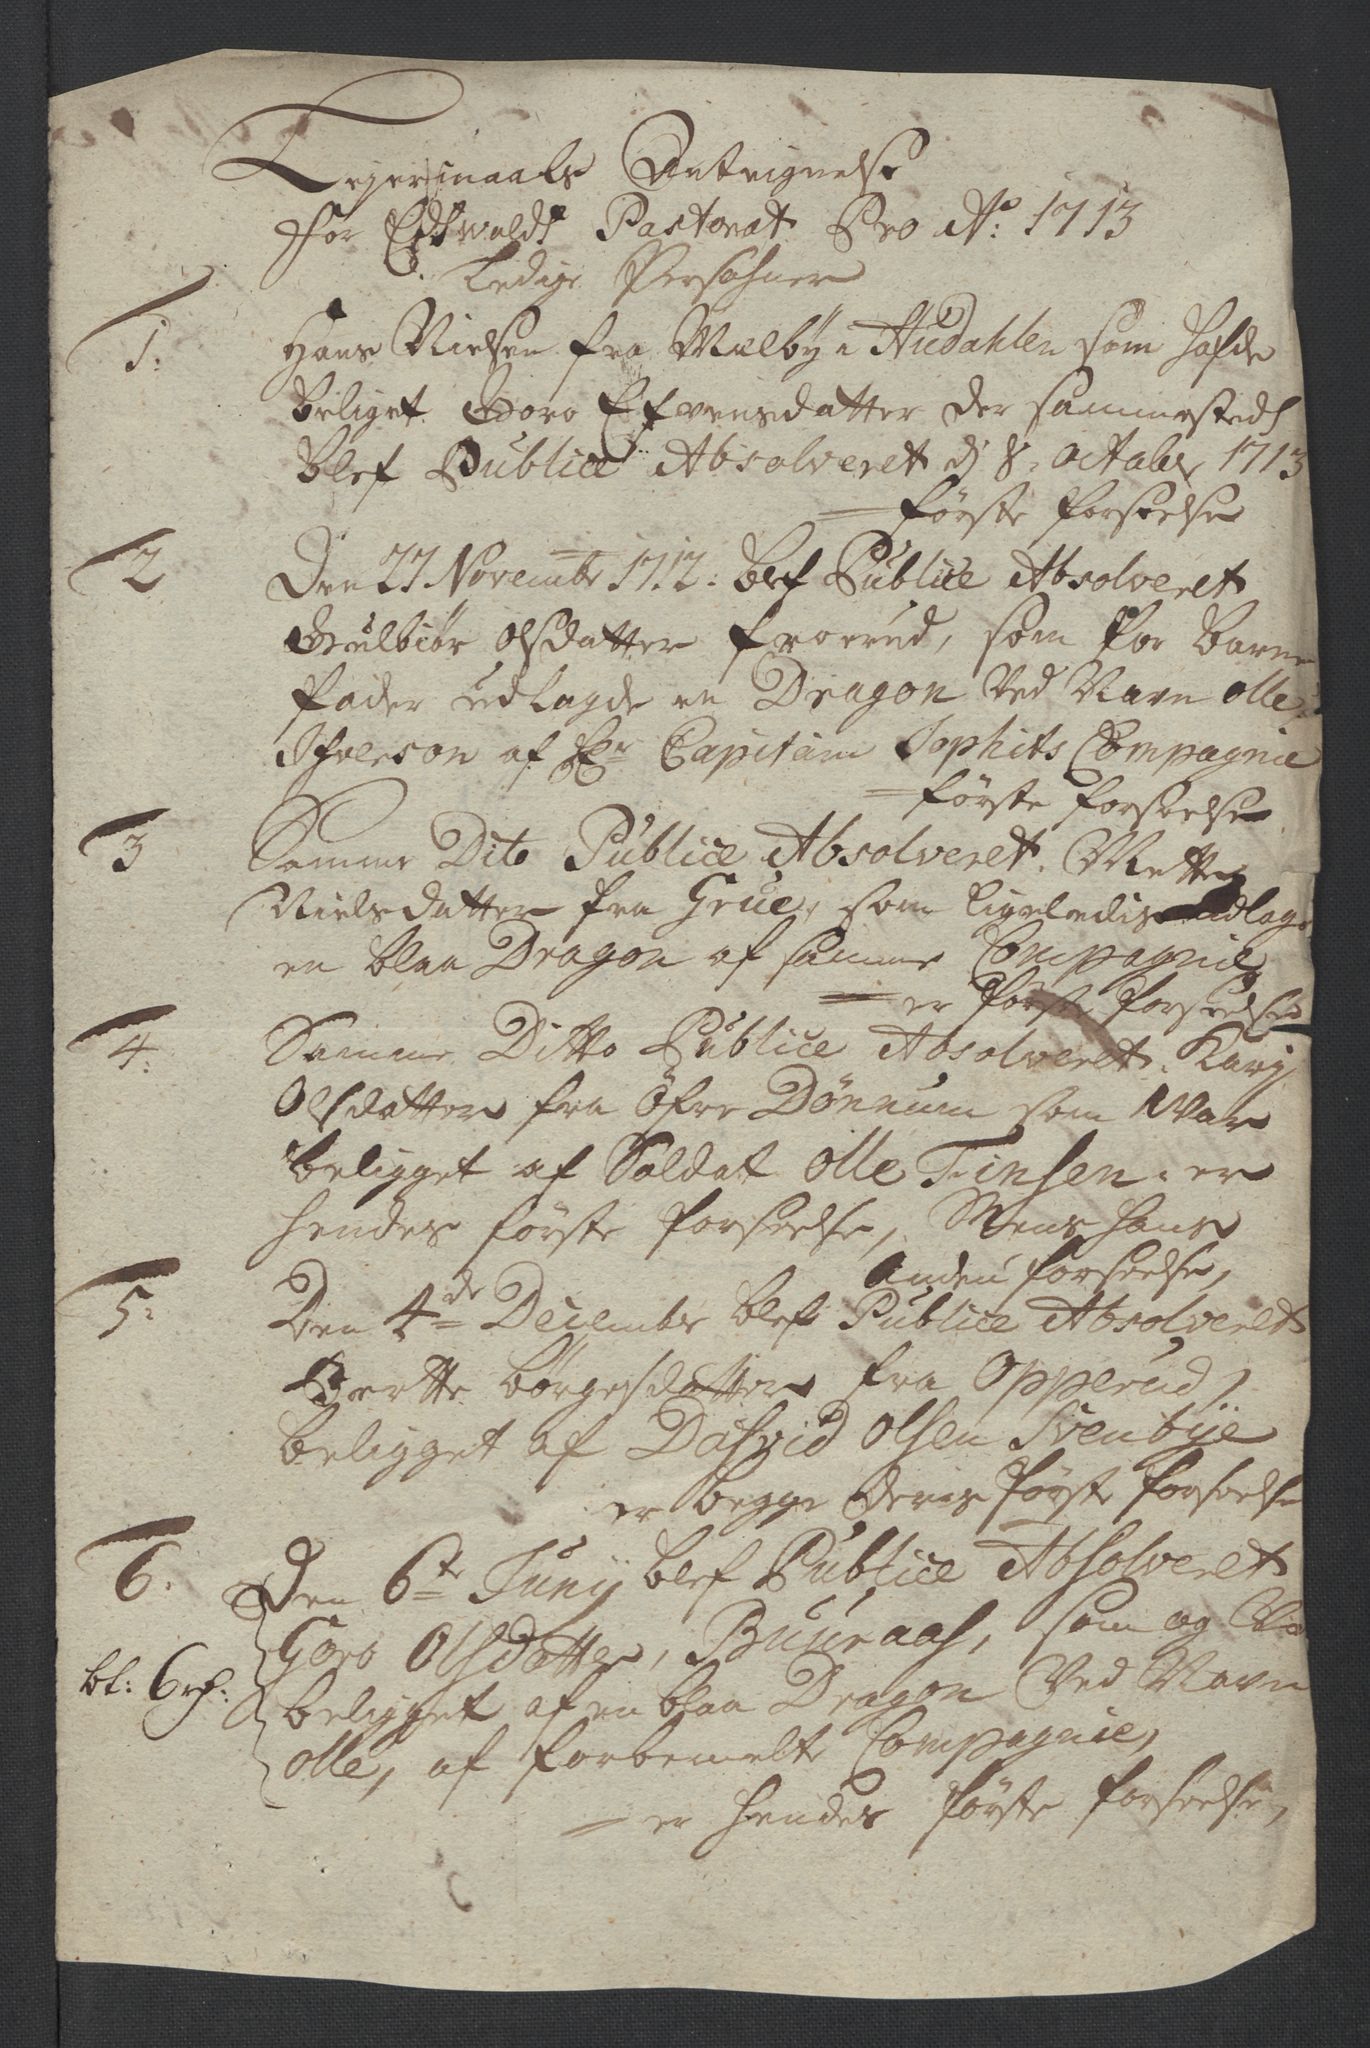 Leyermaals Antegnelse
for Eidtzvoldtz Pastorat Pro Ao: 1713
Ledige Persohner
1: Hans Nielsen fra Melby i Hudahlen som hafde
beliget Goro Efvensdatter der sammestedtz
blef Publice Absolveret dj 8. Octobr 1713
= første forseelse
2 Den 27 Novembr 1712: blef Publice Absolveret
Gulbiør Olsdatter Froerud, som for barne
fader udlagde en Dragon ved Navn Olle
Ifverson af Hr Capitain Compagnie
= første forseelse
3 Samme Dito Publice Absolveret. Mette
Nielsdatter fra Grue, som ligeledis udlagde
en blaa Dragon af samme Compagnie
= er første forseelse
4: Samme Ditto Publice Absolveret. Karj
Olsdatter fra Öfre Dönnum som War
beligget af Soldat Olle Finsen. er
hendes første forseelse, Mens hans
Anden forseelse,
5: Den 4de Decembr blef Publice Absolveret
Berthe Børgesdatter fra Opperud,
beligget af Dafvid Olsen Svenbye
er begge deris første forseelse
6. Den 6te Junij blef Publice Absolveret
Goro Olsdatter, som og
bt: 6 rd: beligget af en blaa Dragon Ved Navn
Olle, af forbemelte Compagnie,
= er hendes første forseelse,